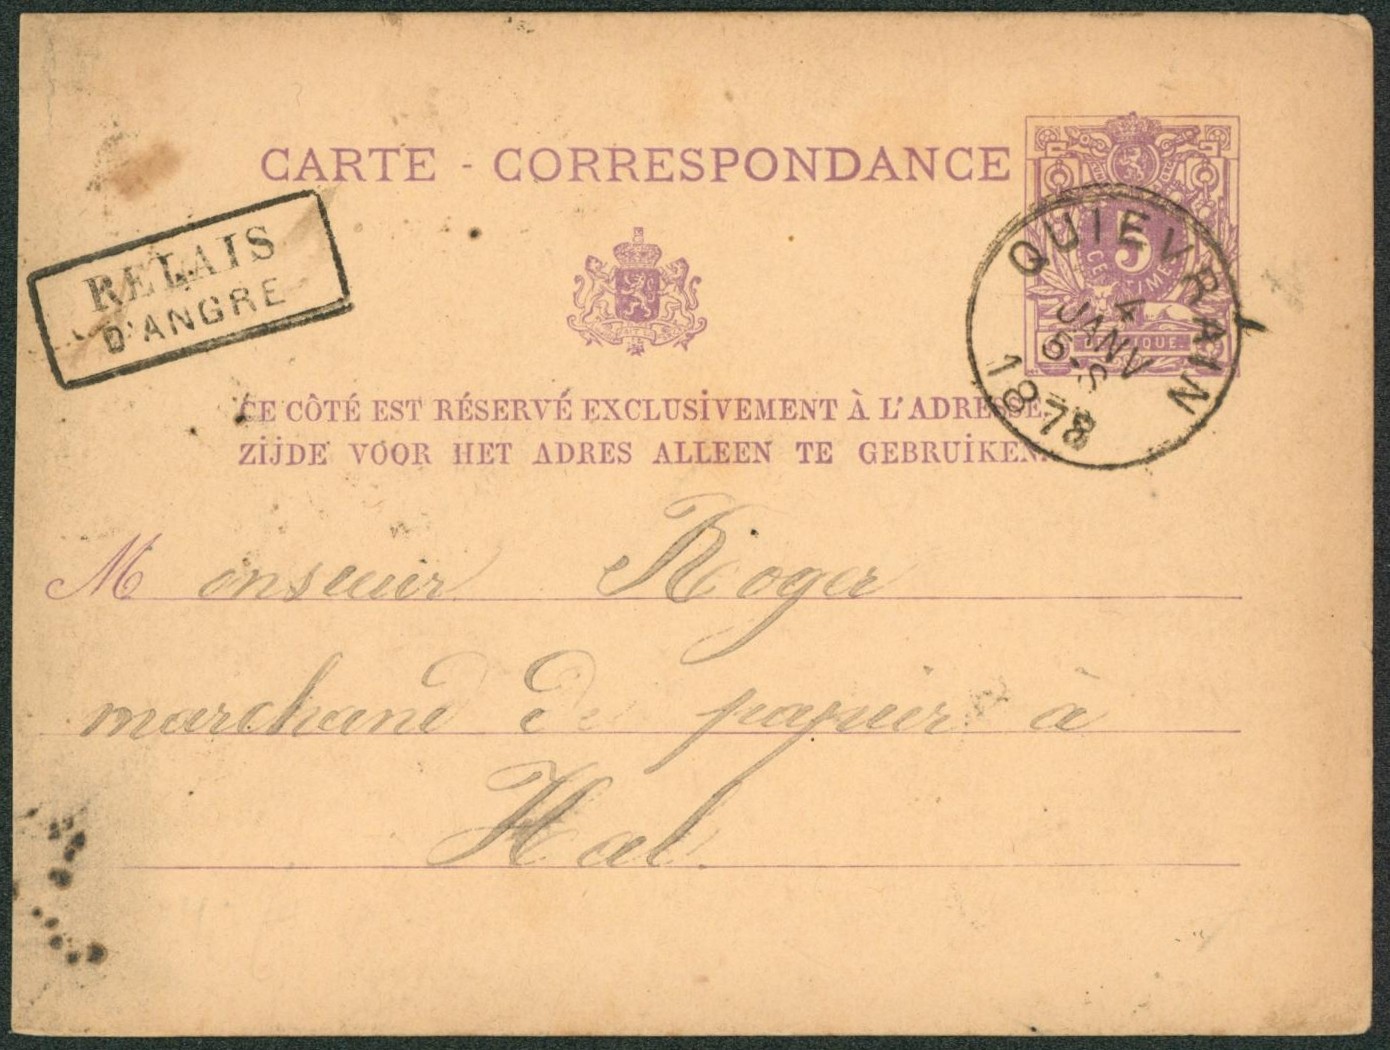 CARTE - CORRESPONDANCE
5
CENTIMES
BELGIQUE.
QUIEVRAIN
4
JANV
6-S
1878
RELAIS
D'ANGRE
CE CÔTÉ EST RÉSERVÉ EXCLUSIVEMENT À L'ADRESSE.
ZIJDE VOOR HET ADRES ALLEEN TE GEBRUIKEN.
Monsieur Roger
marchand de papier à
Hal.